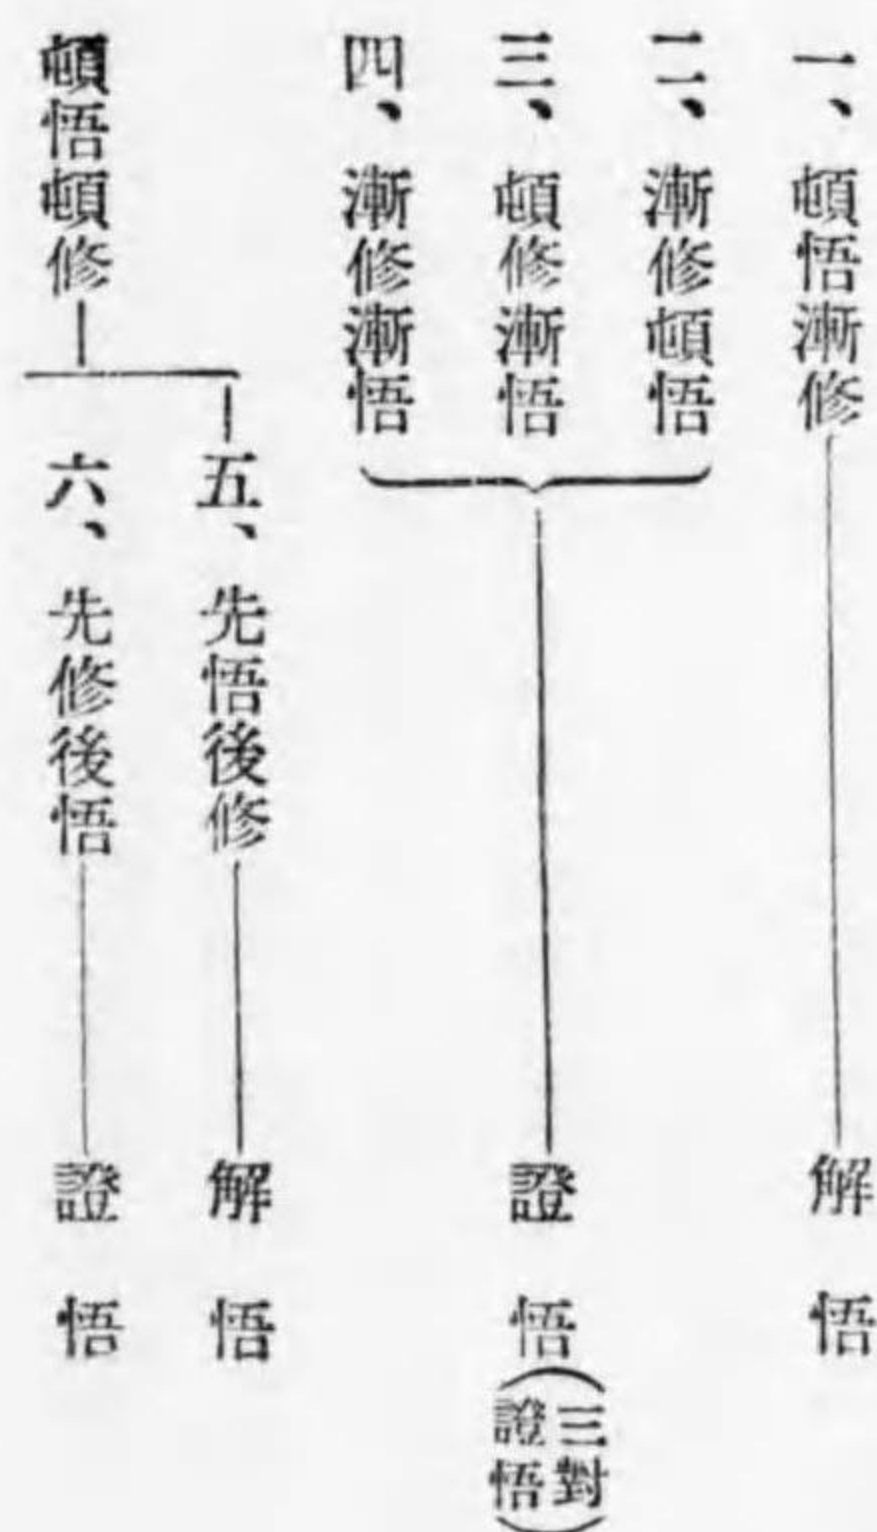 一、頓悟漸修 解悟
二、漸修頓悟
三、頓修漸悟 證悟(三對證悟)
四、漸修漸悟
頓悟頓修
五、先悟後修 解悟
六、先修後悟 證悟